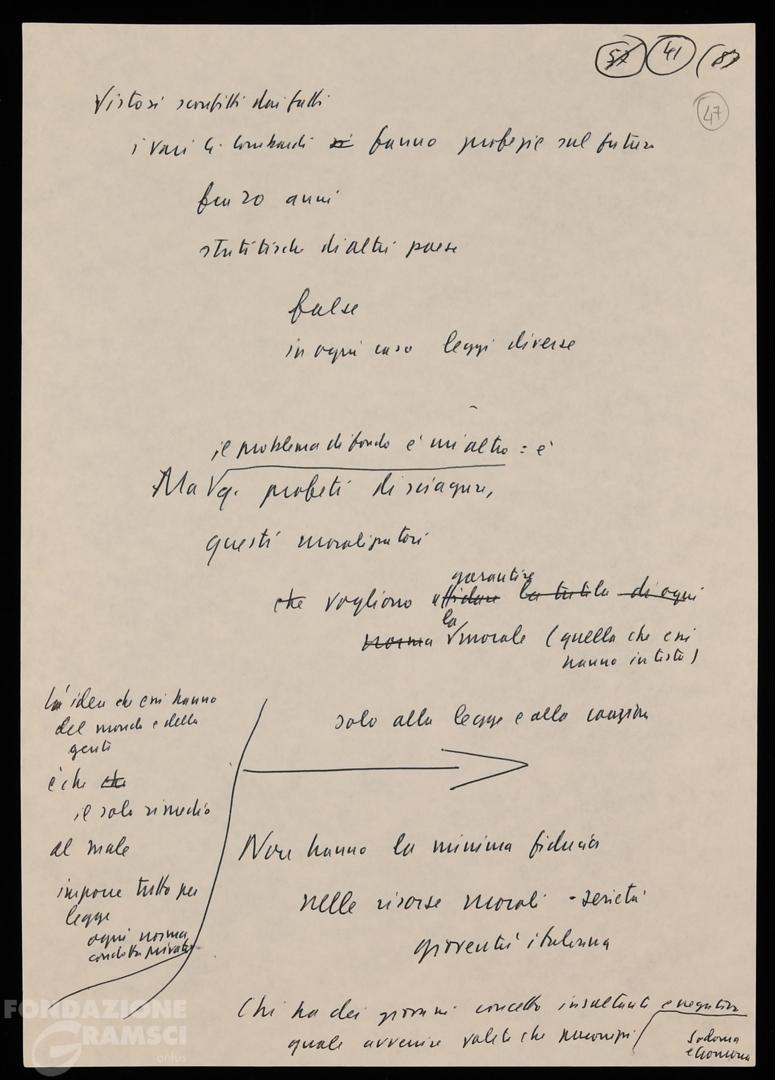 57 41 (8)
47
Vistosi sconfitti dai fatti
i vari G. Lombardi si fanno profezie sul futuro
fra 20 anni
statistiche di altri paesi
false
in ogni caso leggi diverse
il problema di fondo è un'altro : è
Ma profeti di sciagure,
questi moralizzatori
garantire
che vogliono affidare la tutela di ogni
la
norma morale (quella che essi
hanno in testa)
solo alla legge e alla coazione
L'idea che essi hanno
del mondo e della
gente
è che che
il solo rimedio
al male
imporre tutto per
legge
ogni norma
condotta privata
Non hanno la minima fiducia
nelle risorse morali - serietà
gioventù italiana
Chi ha dei giovani concetto insultante e negativo
quale avvenire volete che
Sodoma
e Gomorra
FONDAZIONE
GRAMSCI
onlus